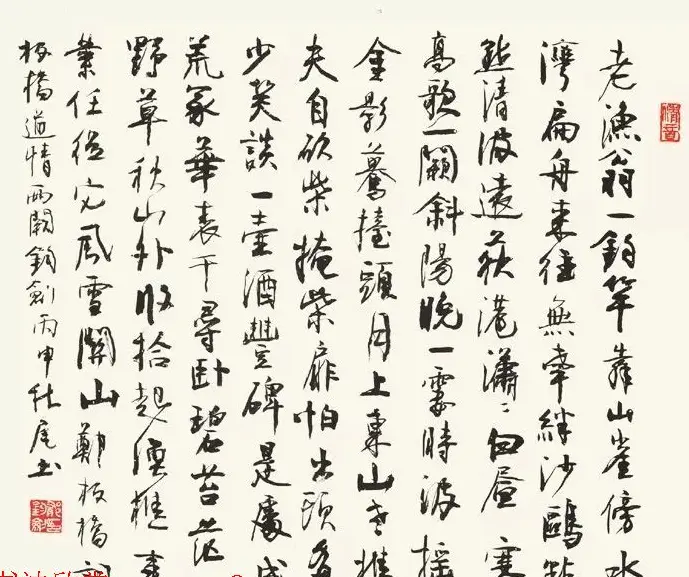 老漁翁一釣竿靠山崖傍水
灣扁舟來往無牽絆沙鷗點
點清波遠荻港瀟〻白晝寒
高歌一闋斜陽晚一霎時波搖
金影驀擡頭月上東山老樵
夫自砍柴掩柴扉怕出頭多
少笑談一壺酒豐碑是處成
荒冢華表千尋卧碧苔茫
野草秋山外收拾起漁樵事
業任從它風雪關山鄭板橋詞
板橋道情兩闋鈞劍丙申秋尾书